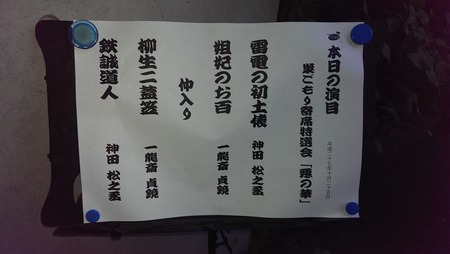 本日の演目
巣ごもり寄席特選会「隠の華」
平成二十七年十月二十五日
雷電の初土俵 神田 松之丞
妲妃のお百 一龍斎 貞鏡
仲入り
柳生二蓋笠 一龍斎 貞鏡
鉄誠道人 神田 松之丞